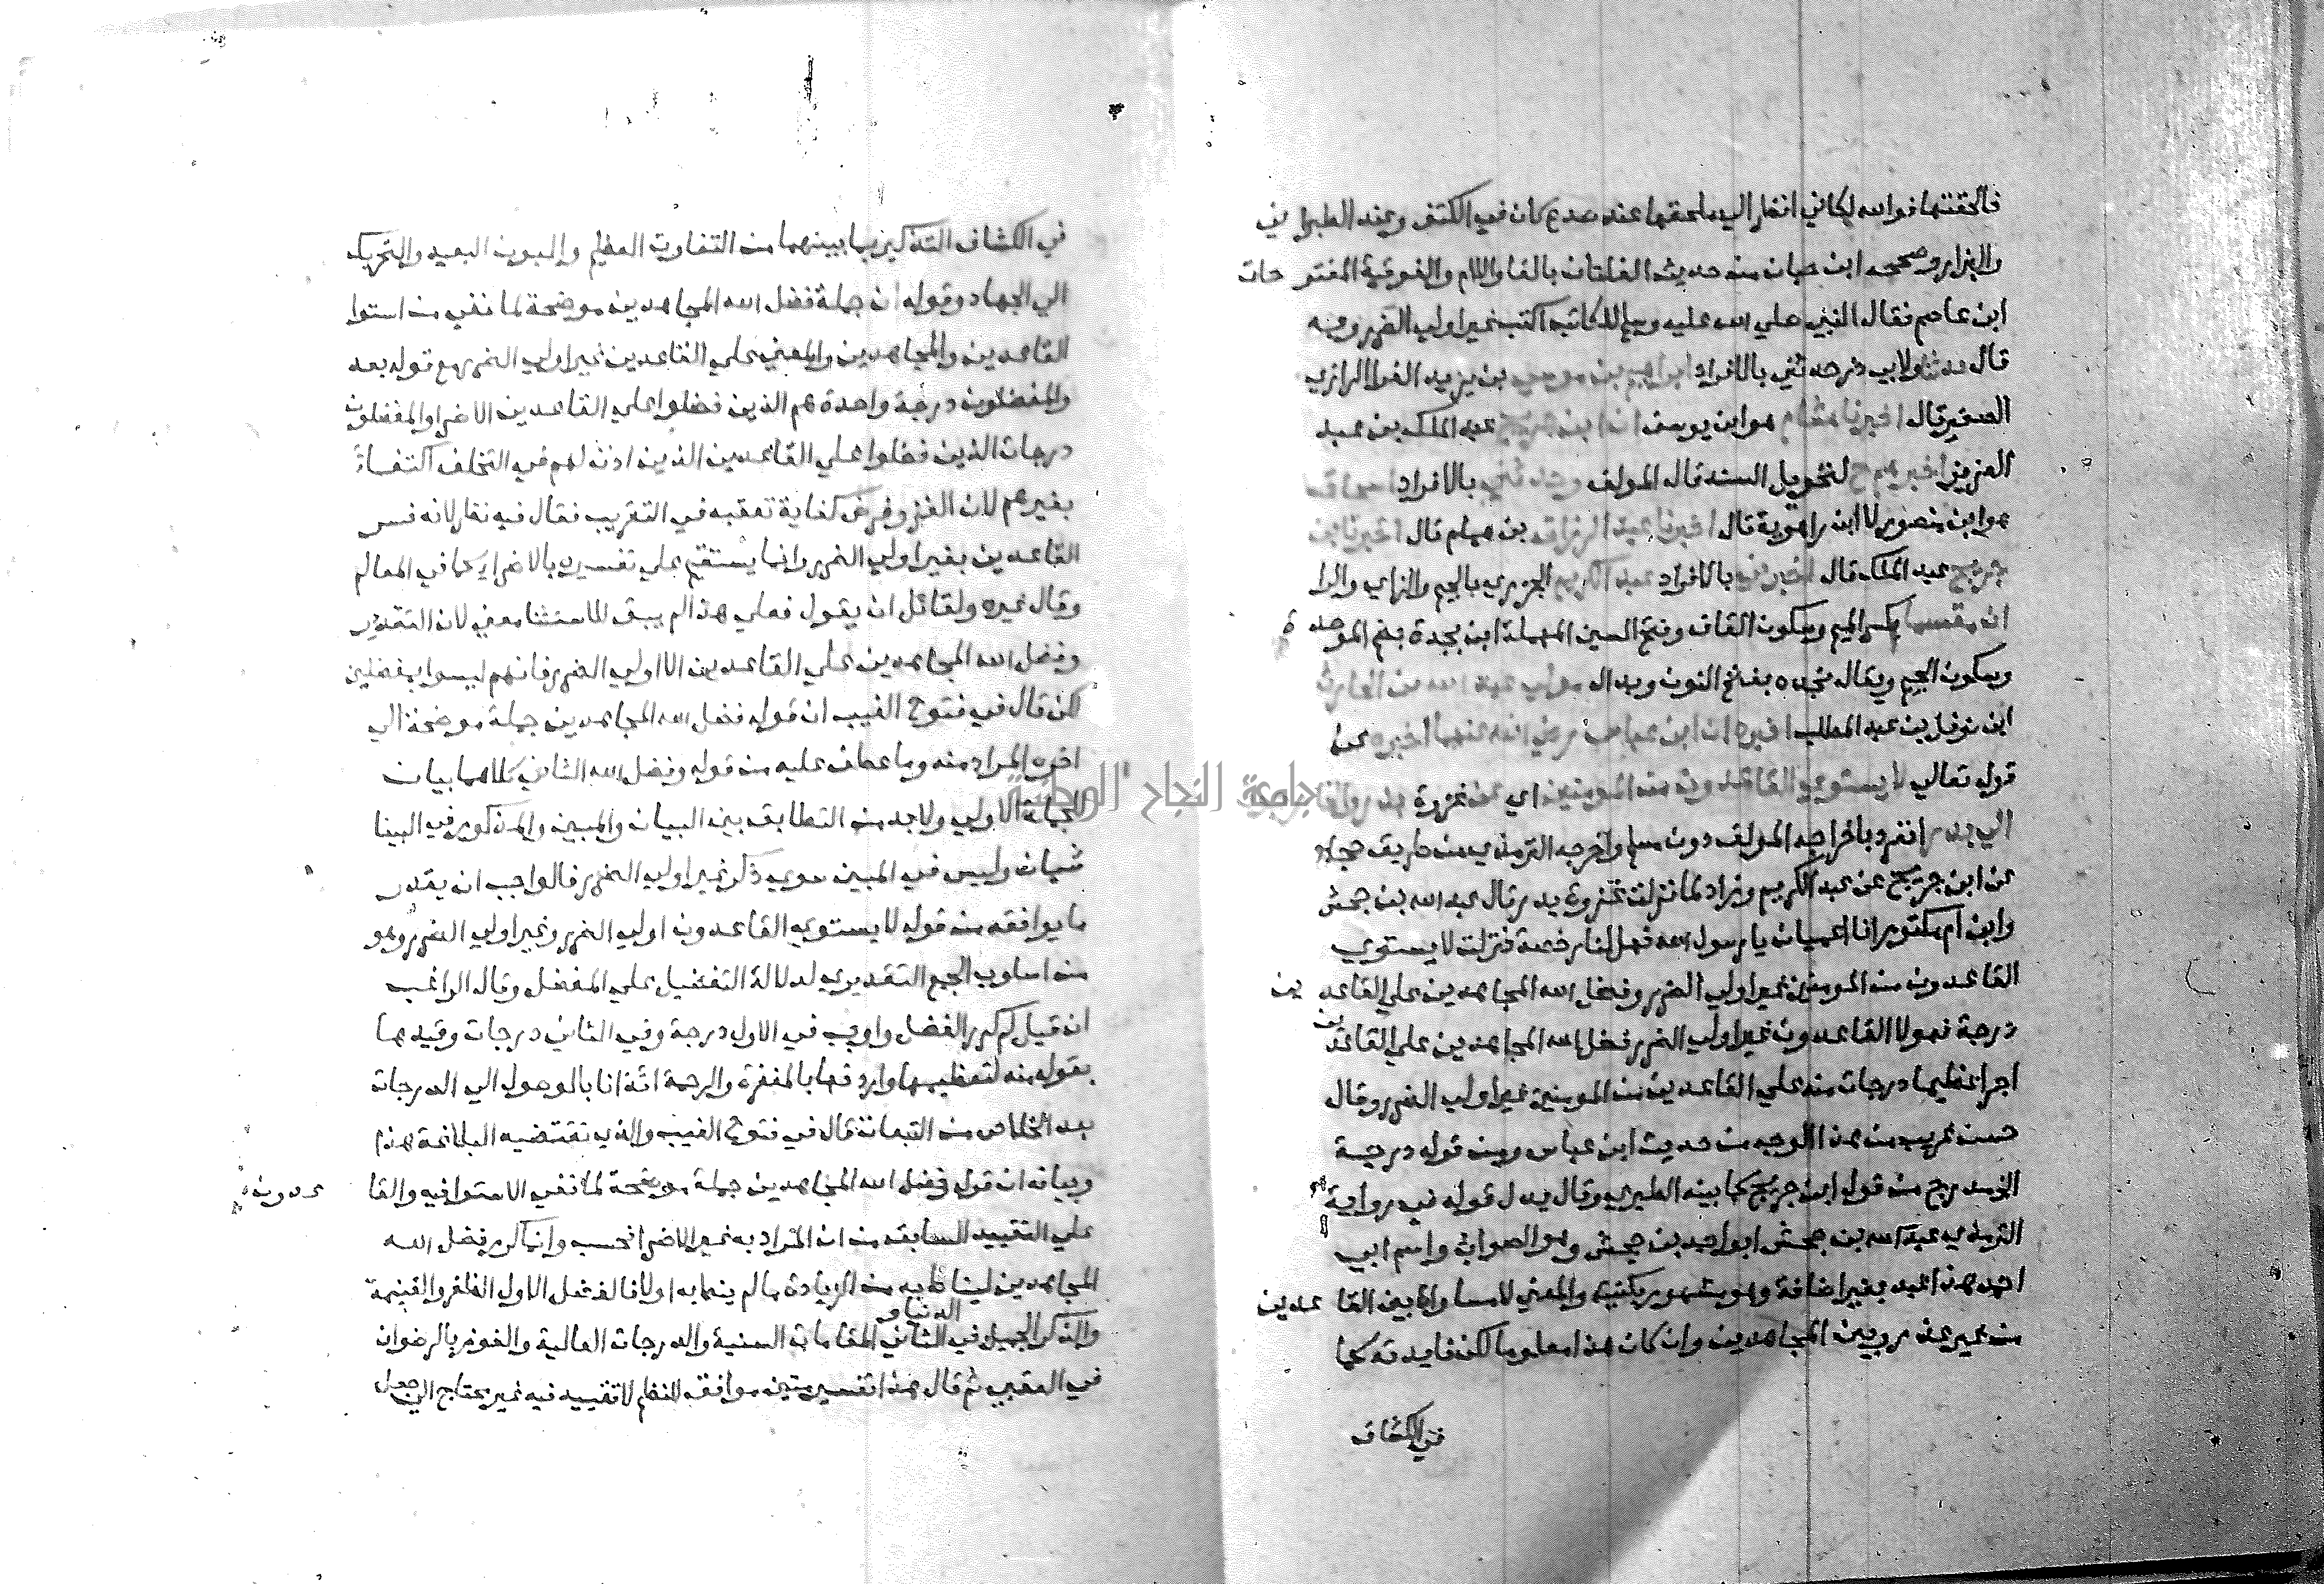 فالحقتها فوالله لكاني انظر الي ملحقها عند صدع كان في الكتف وعند الطبراني
والبزار وصححه ابن حبان من حديث الفلتان بالفا واللام والفوقية المفتوحات
ابن عاصم فقال النبي صلي الله عليه وسلم للكاتب اكتب غير اولي الضرر وبه
قال حدثنا ولابي ذر حدثني بالافراد ابراهيم بن موسي بن يزيد الفرا الرازي
الصغير قال اخبرنا هشام هو ابن يوسف ان ابن جريج عبد الملك بن عبد
العزيز اخبرهم ح لتحويل السند قال المولف وحدثني بالافراد اسحاق
هو ابن منصور لا ابن راهوية قال اخبرنا عبد الرزاق بن همام قال اخبرنا ابن
جريج عبد الملك قال اخبرني بالافراد عبد الكريم الجزري بالجيم والزاي والرا
ان مقسما بكسر الميم وسكون القاف وفتح السين المهملة ابن بجدة بضم الموحدة
وسكون الجيم ويقال نجده بفتح النون وبدال مولي عبد الله بن الحارث
ابن نوفل بن عبد المطلب اخبره ان ابن عباس رضي الله عنهما اخبره عن
قوله تعالي لا يستوي القاعدون من المومنين اي عن غزوة بدر والخارجون
الي بدر انفرد باخراجه المولف دون مسلم واخرجه الترمذي من طريق حجاج
عن ابن جريج عن عبد الكريم وزاد لما نزلت غزوة بدر قال عبد الله بن جحش
وابن ام مكتوم انا اعميان يا رسول الله فهل لنا رخصة فنزلت لا يستوي
القاعدون من المومنين غير اولي الضرر وفضل الله المجاهدين علي القاعدين
درجة فهولا القاعدون غير اولي الضرر فضل الله المجاهدين علي القاعدين
اجرا عظيما درجات منه علي القاعدين من المومنين غير اولي الضرر وقال
حسن غريب من هذا الوجه من حديث ابن عباس ومن قوله درجة
الخ مدرج من قول ابن جريج كما بينه الطبري وقال بدل قوله في رواية
الترمذي عبد الله بن جحش ابو احمد بن جحش وهو الصواب واسم ابي
احمد هذا عبد بغير اضافة وهو مشهور بكنيته والمعني لا مساواة بين القاعدين
من غير عذر وبين المجاهدين وان كان هذا معلوما لكن فايدته كما
في الكشاف
في الكشاف التذكير بما بينهما من التفاوت العظيم والبون البعيد والتحريك
الي الجهاد وقوله ان جملة فضل الله المجاهدين موضحة لما نفي من استوا
القاعدين والمجاهدين والمعني علي القاعدين غير اولي الضرر مع قوله بعد
والمفضلون درجة واحدة هم الذين فضلوا علي القاعدين الاضرا والمفضلون
درجات الذين فضلوا علي القاعدين الذين اذن لهم في التخلف اكتفاء
بغيرهم لان الغزو فرض كفاية تعقبه في التقريب فقال فيه نظر لانه فسر
القاعدين بغير اولي الضرر وانما يستقيم علي تفسيره بالاضرا كما في المعالم
وقال غيره ولقائل ان يقول فعلي هذا لم يبق للاستثنا معني لان التقدير
وفضل الله المجاهدين علي القاعدين الا اولي الضرر فانهم ليسوا بمفضلين
لكن قال في فتوح الغيب ان قوله فضل الله المجاهدين جملة موضحة الي
اخره المراد منه وما عطف عليه من قوله وفضل الله الثاني كلاهما بيان
للجملة الاولي ولا بد من التطابق بين البيان والمبين والمذكور في البيا
شيان وليس في المبين سوي ذكر غير اولي الضرر فالواجب ان يقدر
ما يوافقه من قوله لا يستوي القاعدون اولي الضرر وغير اولي الضرر وهو
من اسلوب الجمع التقديري لدلالة التفضيل علي المفضل وقال الراغب
ان قيل لم كرر الفضل واوجب في الاول درجة وفي الثاني درجات وقيدهما
بقوله منه لتعظيمها واردفها بالمغفرة والرحمة ايذانا بالوصول الي الدرجات
بعد الخلاص من التبعات قال في فتوح الغيب والذي تقتضيه البلاغة هذا
وبيانه ان قوله فضل الله المجاهدين جملة موضحة لما نفي الاستوا فيه والقاعدون
علي التقييد السابق من ان المراد به غير الاضرا فحسب وانما كرر فضل الله
المجاهدين ليناط به من الزيادة ما لم ينط به اولا فالفضل الاول الظفر والغنيمة
والذكر الجميل في الدنيا والثاني المقامات السنية والدرجات العالية والفوز بالرضوان
في العقبي ثم قال هذا تفسير متين موافق للنظم لا تقييد فيه غير محتاج الي جعل
جامعة النجاح الوطنية